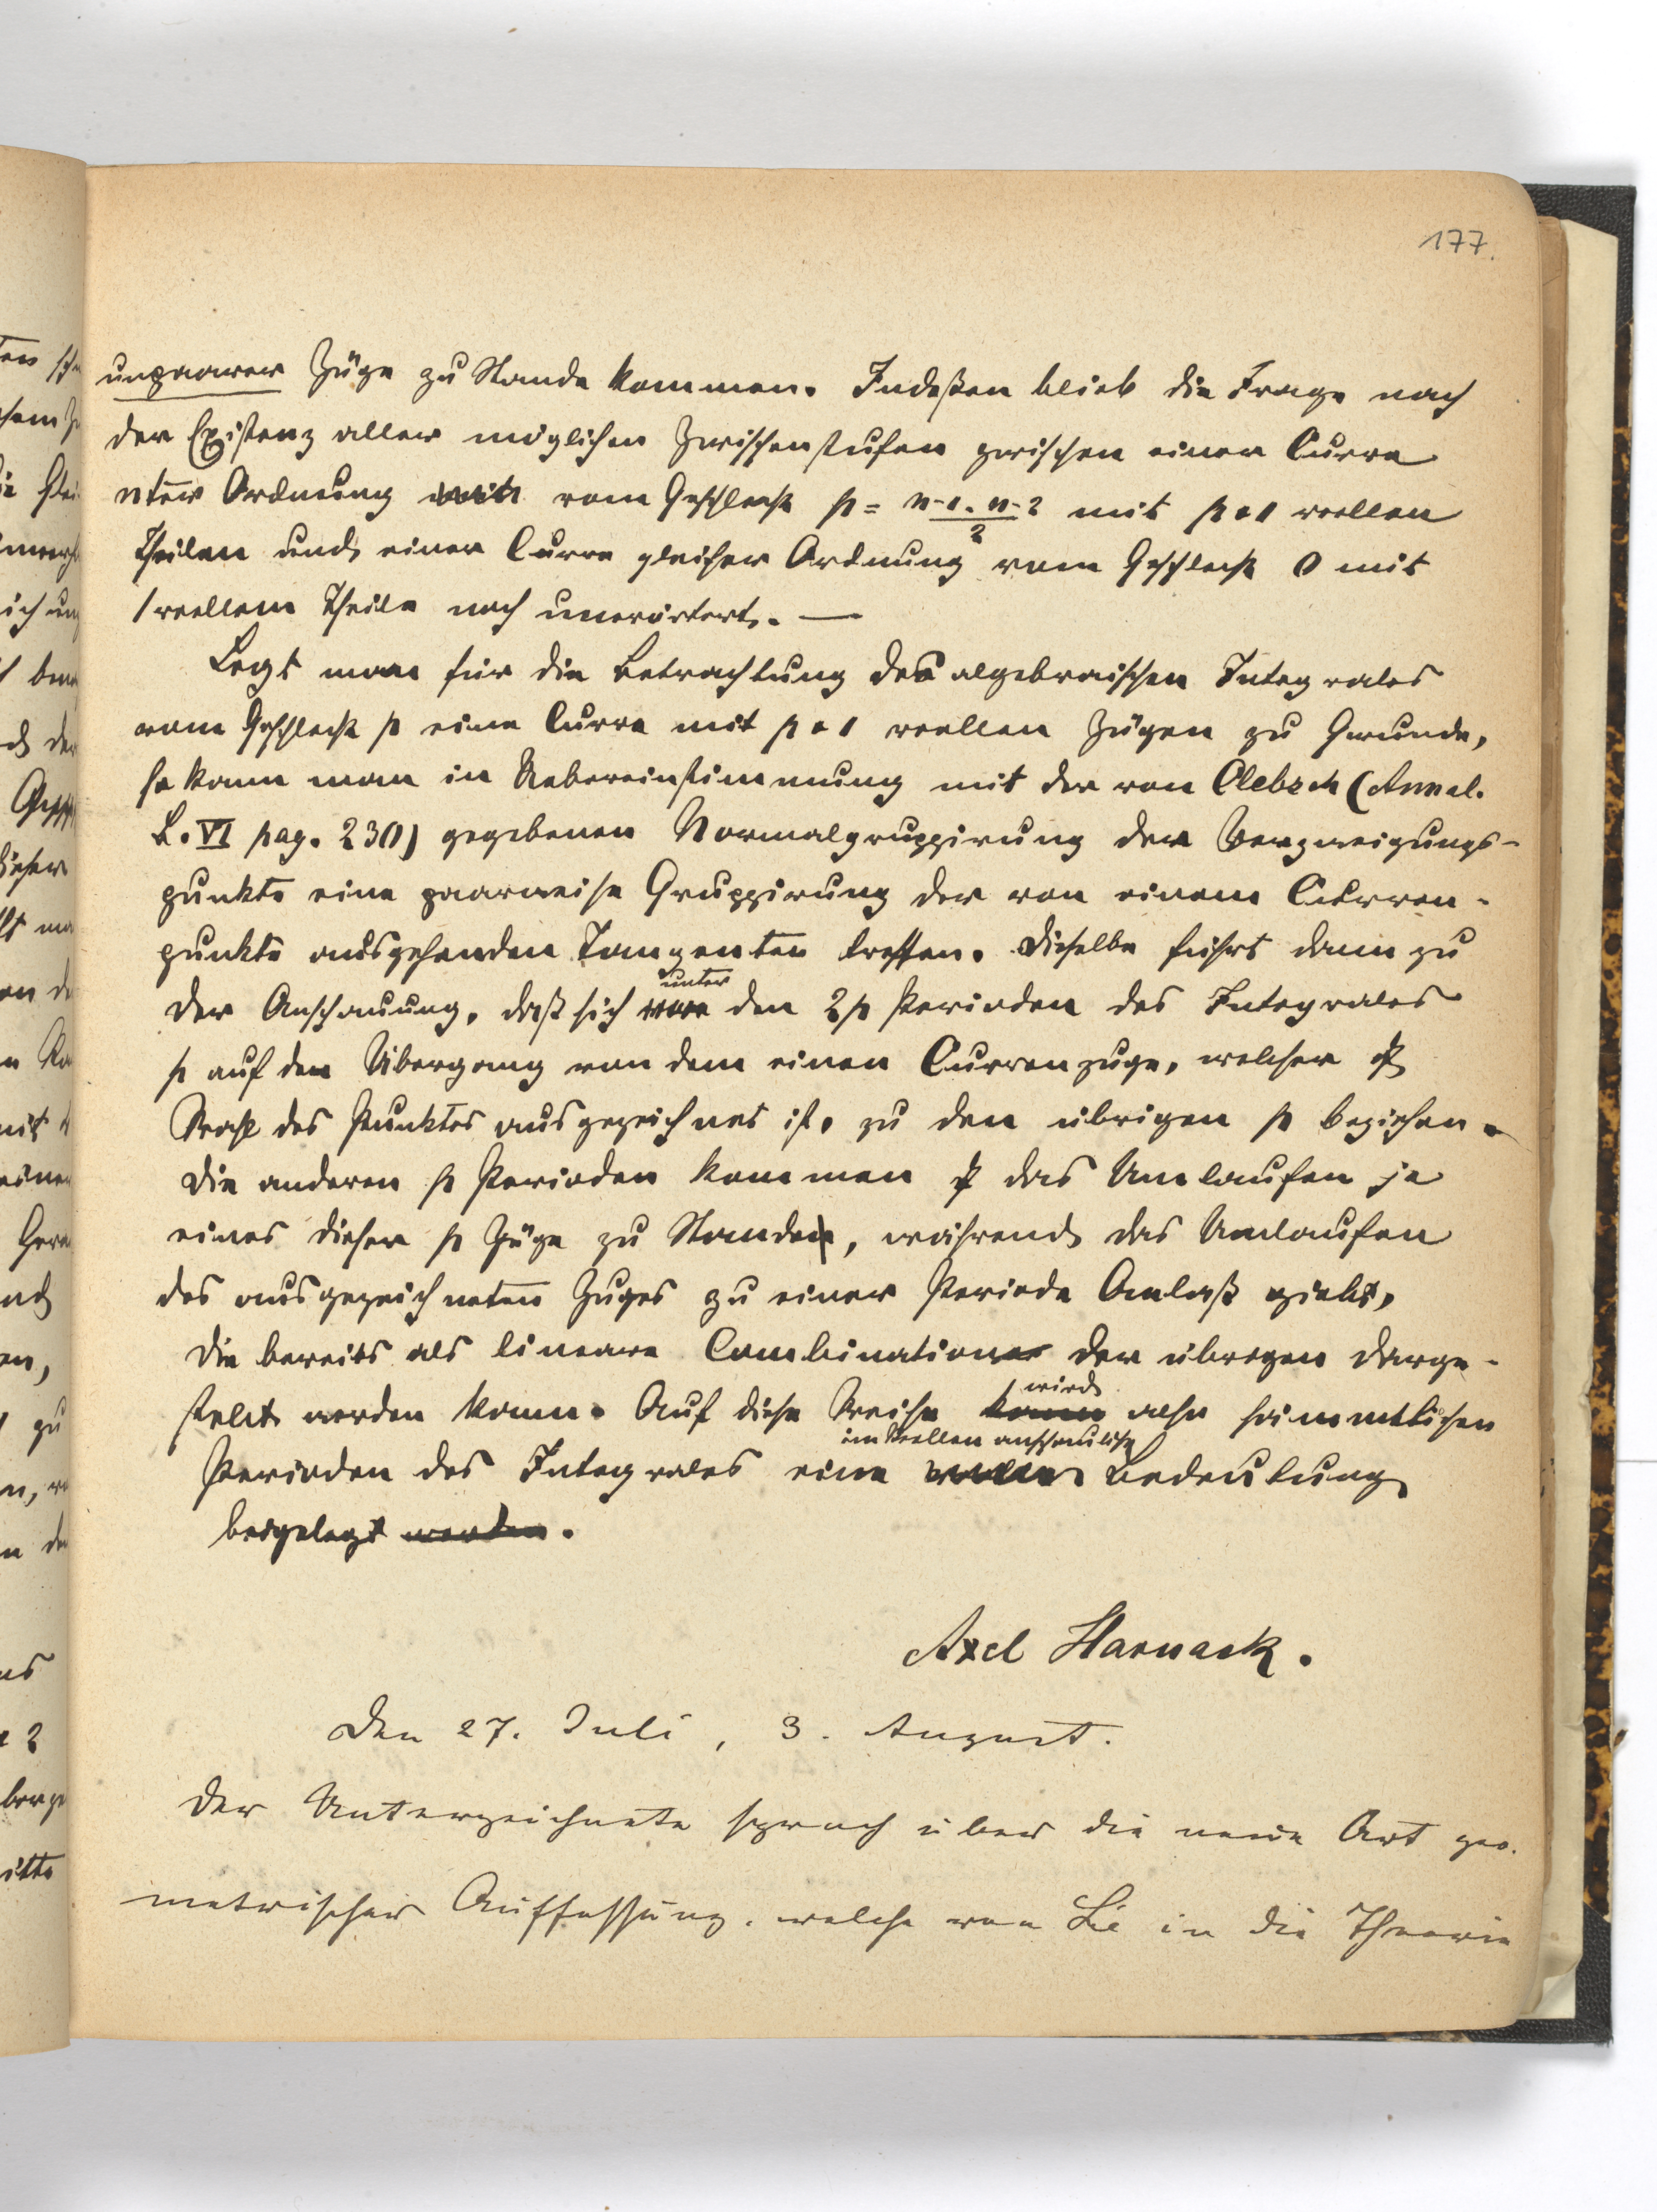 177.
unpaarer Züge zu Stande kommen. Indeßen blieb die Frage nach
der Existenz aller möglichen Zwischenstufen zwischen einer Curve
nter Ordnung vom Geschlecht p = n-1 . n-2 / 2 mit p + 1 reellen
Theilen und einer Curve gleicher Ordnung vom Geschlecht 0 mit
1 reellem Theile noch unerörtert. —
Legt man für die Betrachtung des algebraischen Integrales
vom Geschlecht p eine Curve mit p + 1 reellen Zügen zu Grunde,
so kann man in Uebereinstimmung mit der von Clebsch (Annal.
B. VI pag. 230) gegebenen Normalgruppirung der Verzweigungs-
punkte eine paarweise Gruppirung der von einem Curven-
punkte ausgehenden Tangenten treffen. Dieselbe führt dann zu
der Anschauung, daß sich unter den 2p Perioden des Integrales
p auf den Übergang von dem einen Curvenzuge, welcher
Wahl des Punktes ausgezeichnet ist, zu den übrigen p beziehen.
Die anderen p Perioden kommen das Umlaufen je
eines dieser p Züge zu Stande, während das Umlaufen
des ausgezeichneten Zuges zu einer Periode Anlaß giebt,
die bereits als lineare Combination der übrigen darge-
stellt werden kann. Auf diese Weise kann wird also sämmtlichen
Perioden des Integrales eine im Reellen anschauliche Bedeutung
beigelegt werden.
Axel Harnack.
Den 27. Juli, 3. August.
Der Unterzeichnete sprach über die neue Art geo-
metrischer Auffassung, welche von Lie in die Theorie